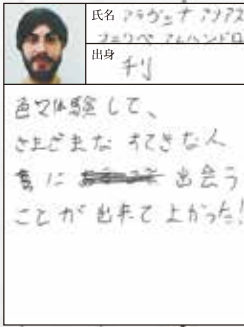 氏名 アラヴェナ アナアス
フェリペ アレハンドロ
出身 チリ
色々体験して、
さまざまな すてきな人
に 出会う
ことが 出来て よかった!